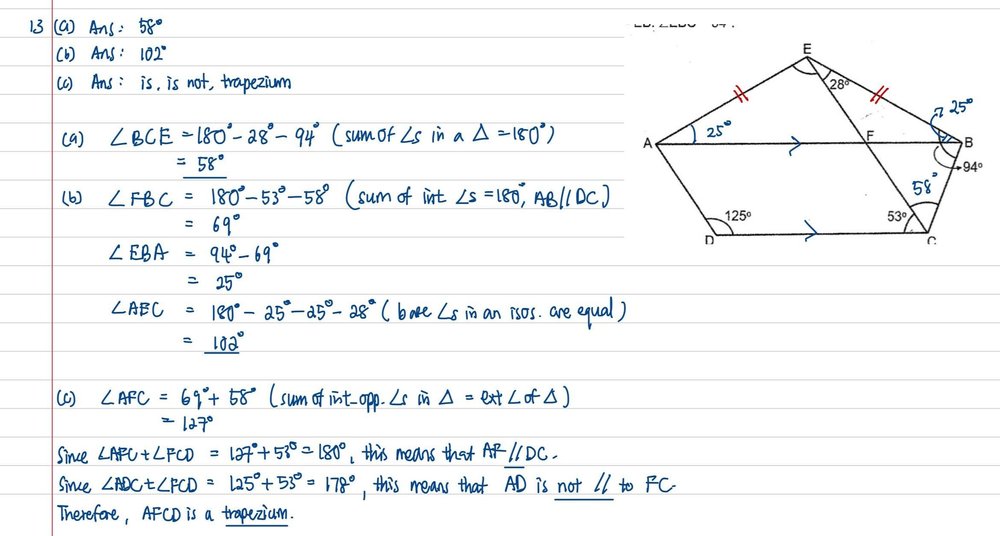 13 (a) Ans: 58°
(b) Ans: 102°
(c) Ans: is, is not, trapezium
(a) ∠BCE = 180° - 28° - 94° (sum of ∠s in a Δ = 180°)
= 58°
(b) ∠FBC = 180° - 53° - 58° (sum of int ∠s = 180°, AB//DC)
= 69°
∠EBA = 94° - 69°
= 25°
∠AEC = 180° - 25° - 25° - 28° (base ∠s in an isos. are equal)
= 102°
(c) ∠AFC = 69° + 58° (sum of int. opp. ∠s in Δ = ext ∠ of Δ)
= 127°
Since ∠AFC + ∠FCD = 127° + 53° = 180°, this means that AF // DC.
Since ∠ADC + ∠FCD = 125° + 53° = 178°, this means that AD is not // to FC.
Therefore, AFCD is a trapezium.
E
28°
25°
A
25°
F
B
94°
58°
125°
53°
D
C